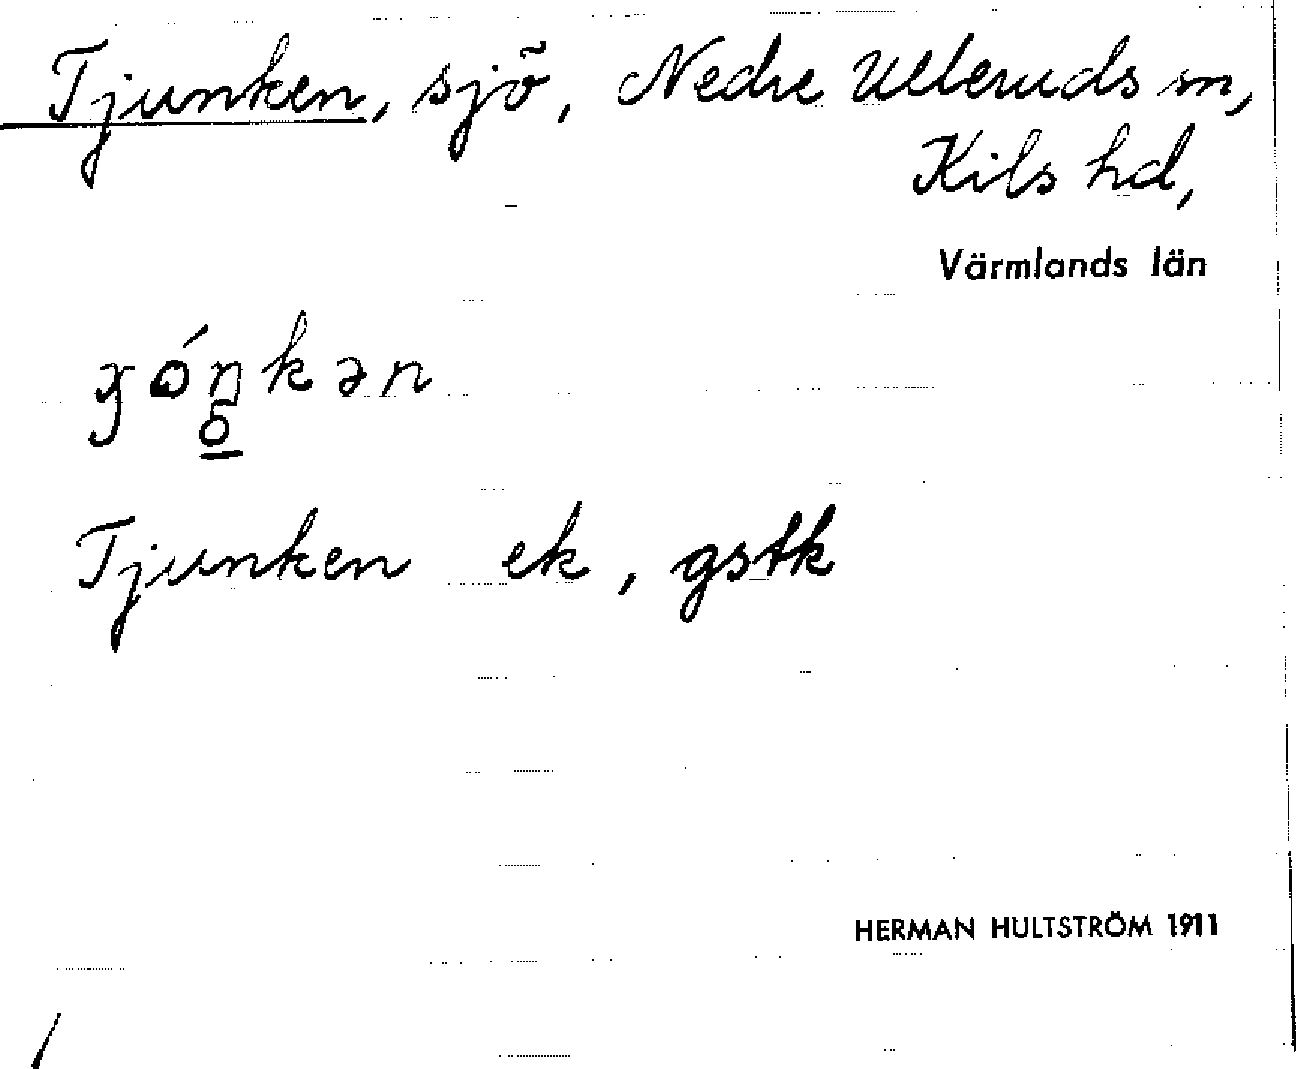 Tjunken, sjö, Nedre Ulleruds sn,
Kils hd,
Värmlands län
Tjunken ek, gstk
HERMAN HULTSTRÖM 1911